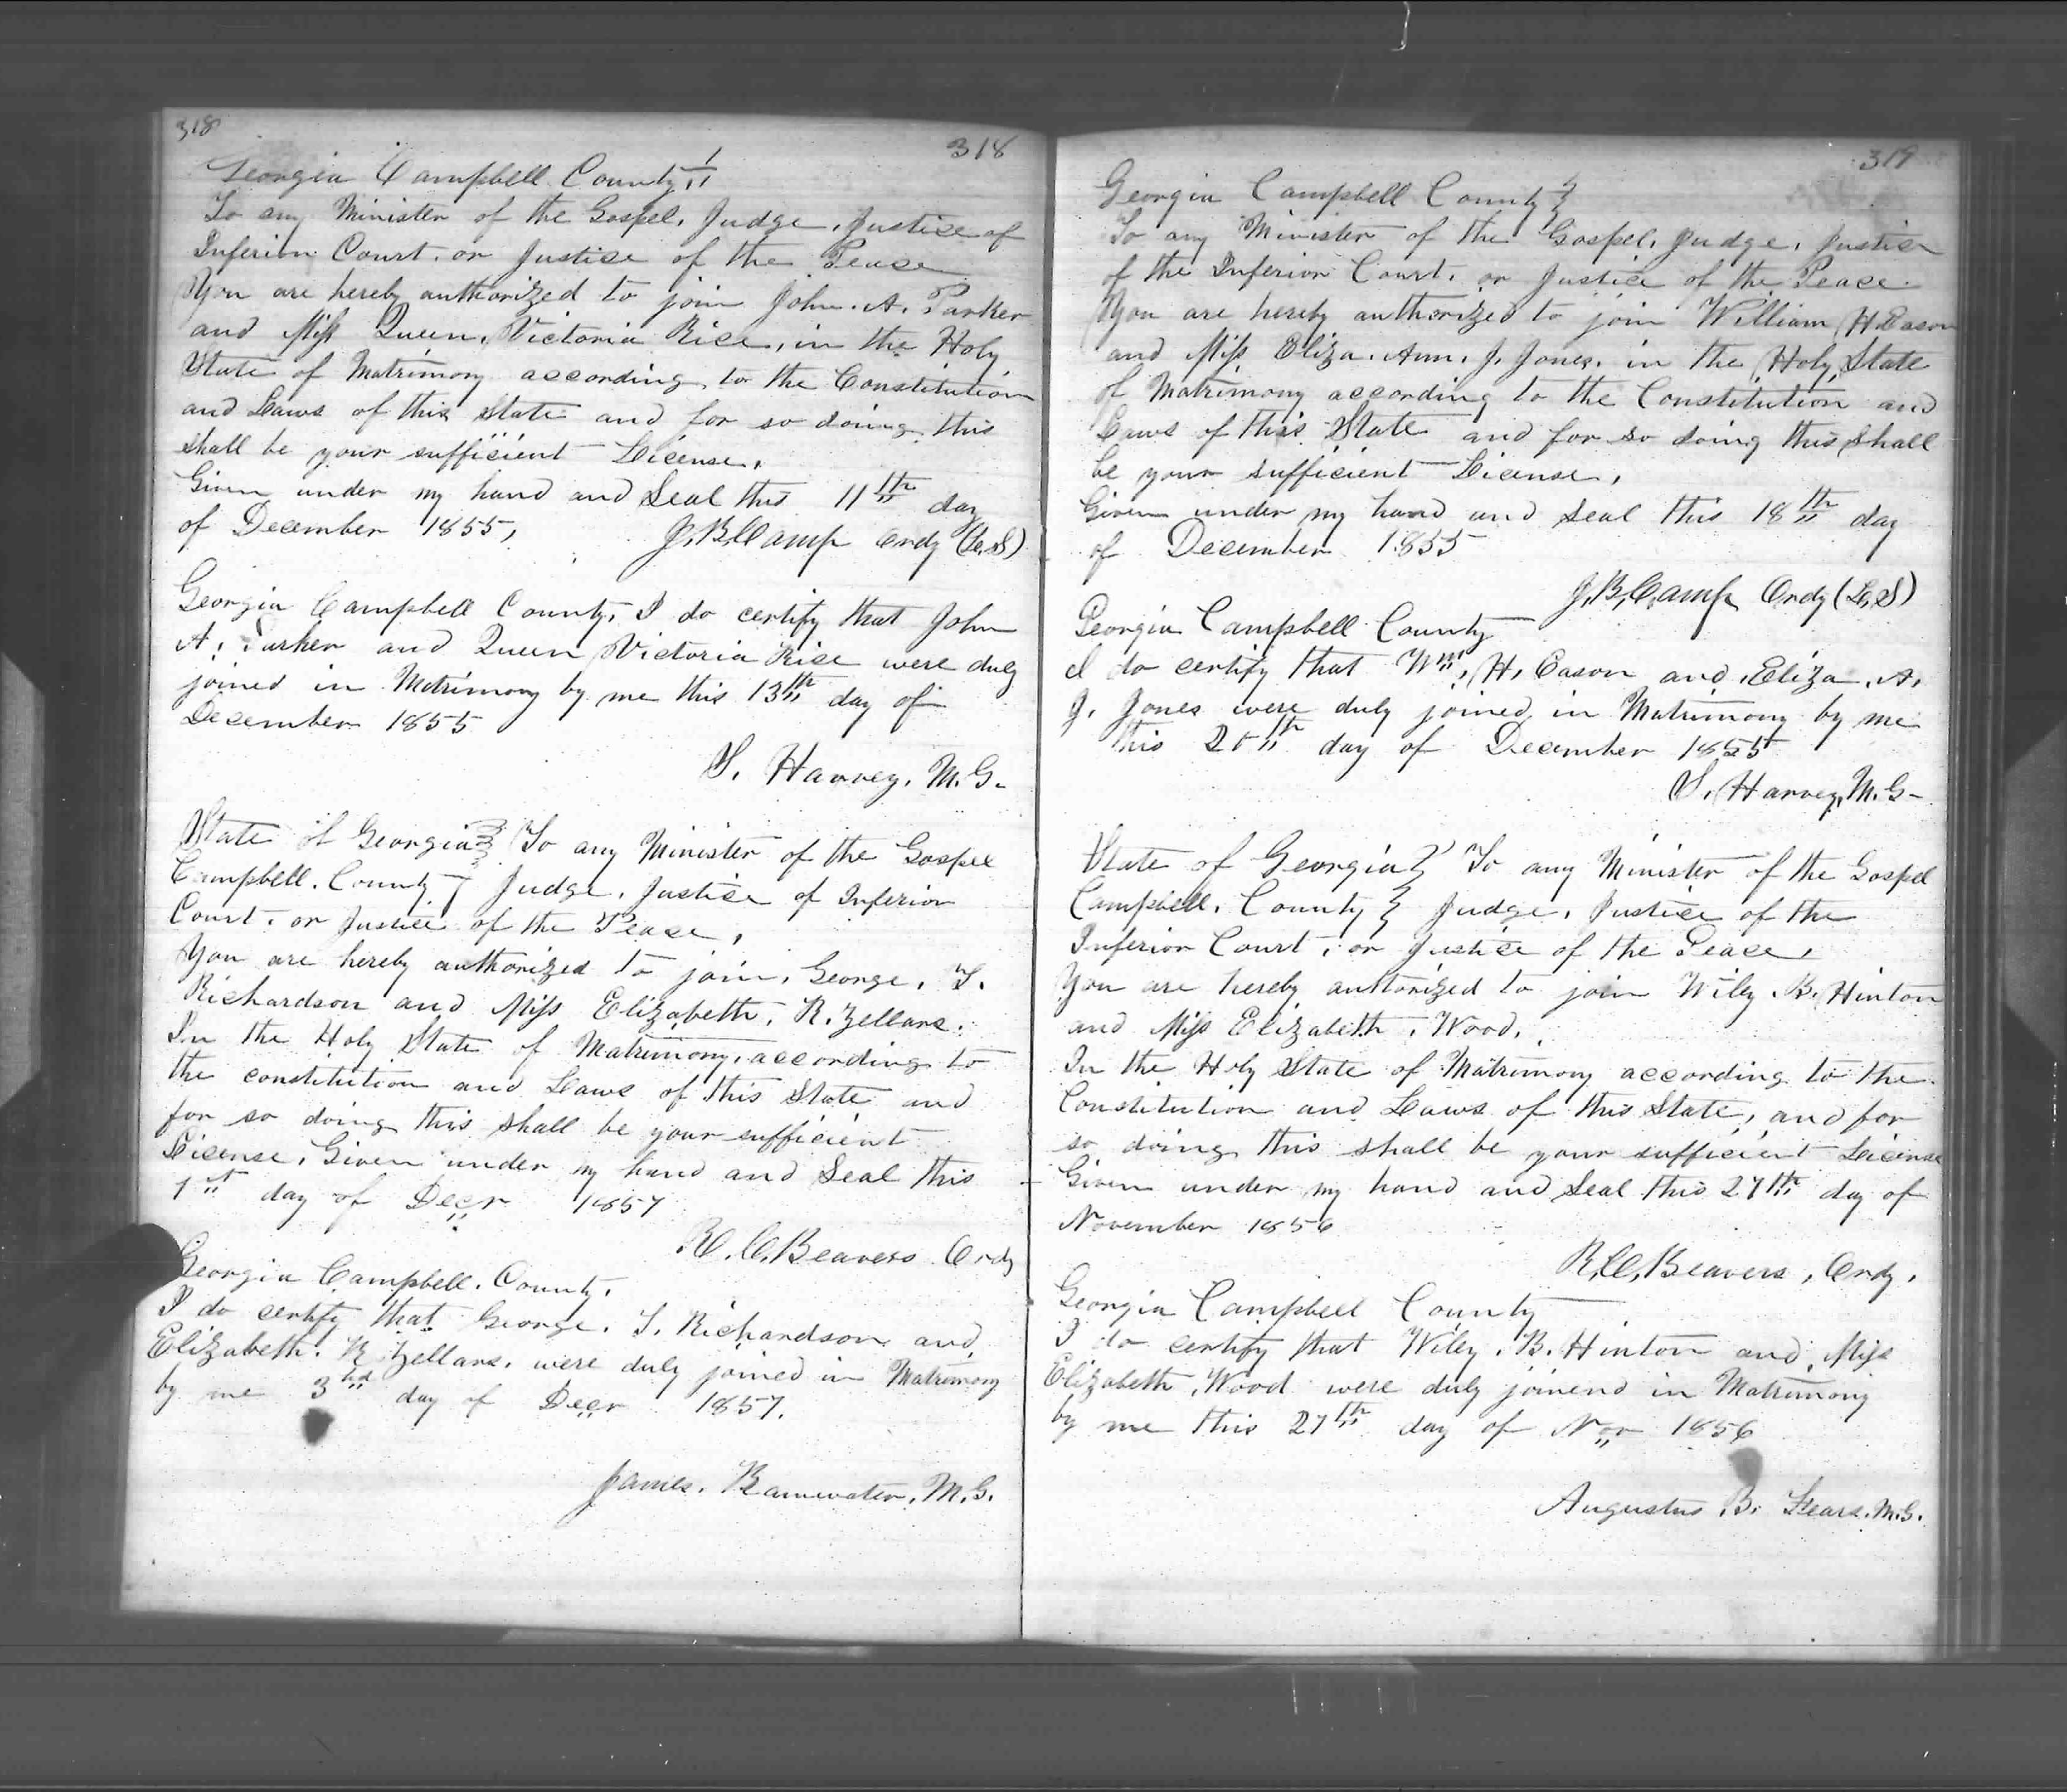 318
318
Georgia Campbell County
To any Minister of the Gospel, Judge, Justice of
Inferior Court, or Justice of the Peace
You are hereby authorized to join John. A. Parker
and Miss Queen, Victoria Rice, in the Holy
State of Matrimony according to the Constitution
and Laws of this State and for so doing this
shall be your sufficient License,
Given under my hand and Seal this 11th day
of December 1855, J. B. Camp Ordy (L.S)
Georgia Campbell County, I do certify that John
A, Parker and Queen Victoria Rice were duly
joined in Matrimony by me this 13th day of
December 1855
S. Harvey, M. G.
State of Georgia } To any Minister of the Gospel
Campbell. County } Judge, Justice of Inferior
Court, or Justice of the Peace,
You are hereby authorized to join, George, T.
Richardson and Miss Elizabeth, R. Zellars.
In the Holy State of Matrimony, according to
the constitution and Laws of this State and
for so doing this shall be your sufficient
License, Given under my hand and Seal this
1st day of Decr 1857
R. C. Beavers Ordy
Georgia Campbell. County,
I do certify that George. T. Richardson and
Elizabeth. R Zellars, were duly joined in Matrimony
by me 3rd day of Decr 1857.
James. Rainwater, M. G.
319
Georgia Campbell County }
To any Minister of the Gospel, Judge, Justice
of the Inferior Court, or Justice of the Peace.
You are hereby authorized to join William H Eason
and Miss Eliza. Ann. J. Jones. in the Holy State
of Matrimony according to the Constitution and
Laws of this State and for so doing this shall
be your sufficient License,
Given under my hand and Seal this 18th day
of December 1855
J. B. Camp Ordy (L,S)
Georgia Campbell County
I do certify that Wm, H, Eason and Eliza, A,
J. Jones were duly joined in Matrimony by me
this 20th day of December 1855
S, Harvey, M. G-
State of Georgia } To any Minister of the Gospel
Campbell. County } Judge, Justice of the
Inferior Court, or Justice of the Peace,
You are hereby autorized to join Wiley. B. Hinton
and Miss Elizabeth, Wood,
In the Holy State of Matrimony according to the
Constitution and Laws of this State, and for
so doing this shall be your sufficient License
Given under my hand and Seal this 27th day of
November 1856
R, C, Beavers, Ordy,
Georgia Campbell County
I do certify that Wiley, B. Hinton and, Miss
Elizabeth, Wood were duly joinend in Matrimony
by me this 27th day of Nov 1856
Augustus B. Fears. M. G.